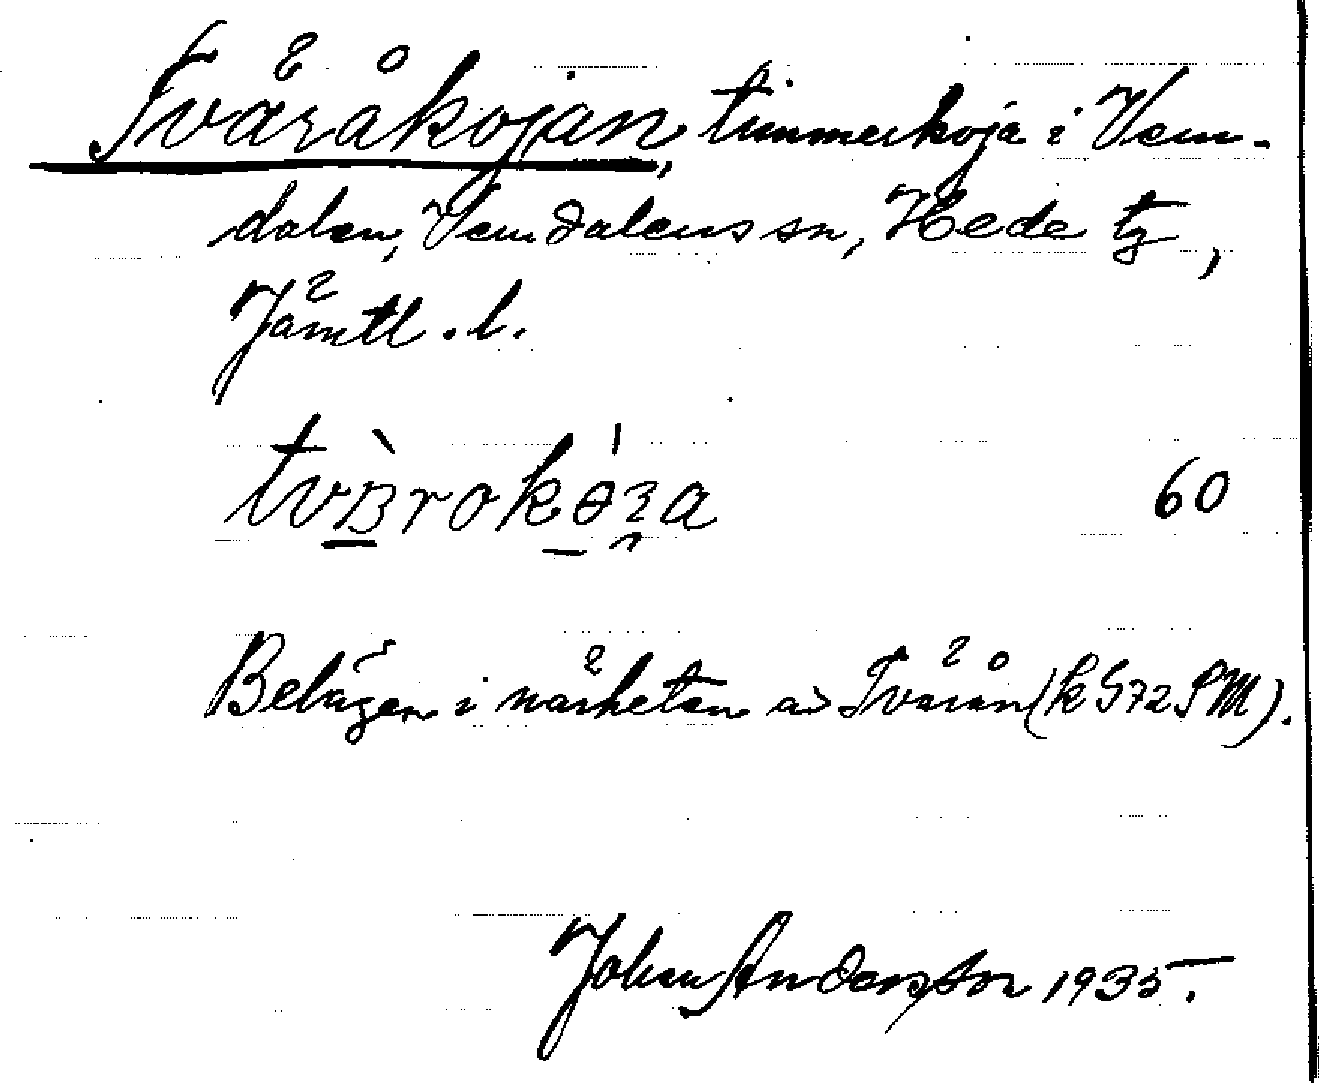 Tväråkojan, timmerkoja i Vem-
dalen, Vemdalens sn, Hede tg,
Jämtl. l.
60
Belägen i närheten av Tvärån (k 572 SM).
Johan Andersson 1935.